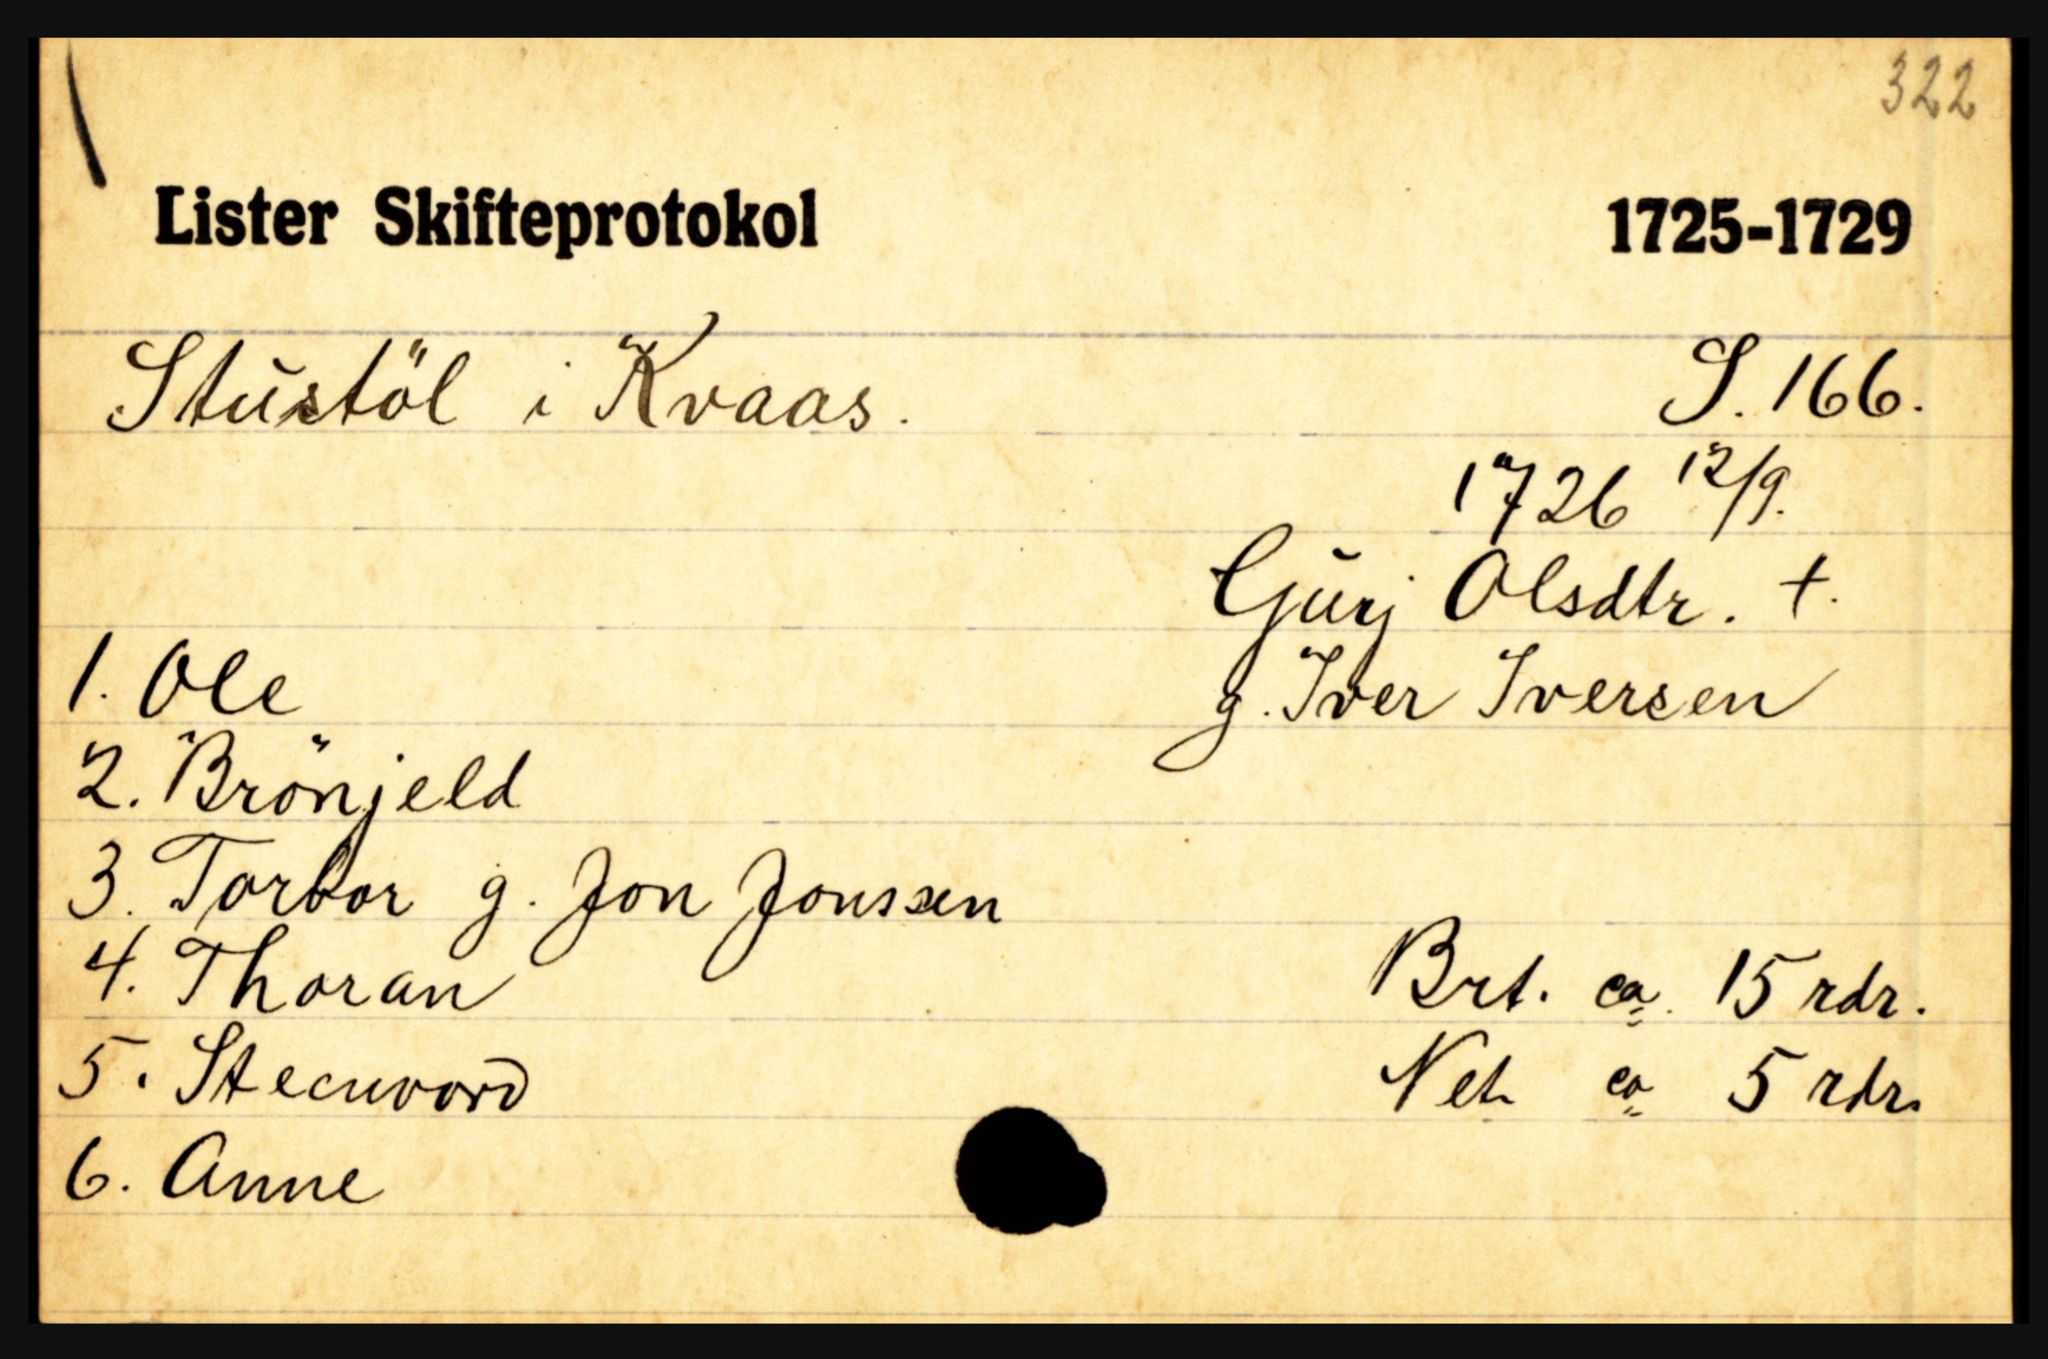 322
Lister Skifteprotokol 1725-1729
Stustöl i Kvaas. S. 166.
1726 12/9.
Gurj Olsdtr. †.
1. Ole g. Iver Iversen
2. Brönjeld
3. Torbor g. Jon Jonssen
4. Thoran Brt. ca. 15 rdr.
5. Steenvord Net. ca 5 rdr.
6. Anne